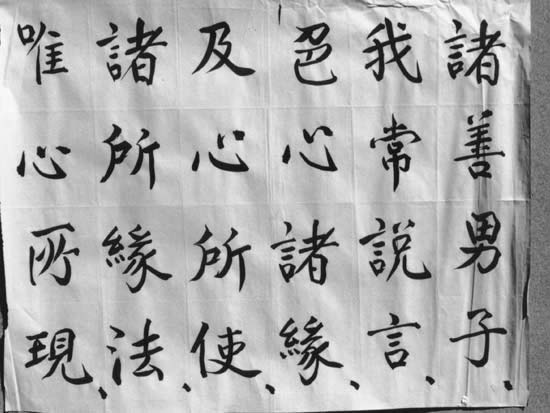 諸善男子、
我常說言、
色心諸緣、
及心所使、
諸所緣法、
唯心所現